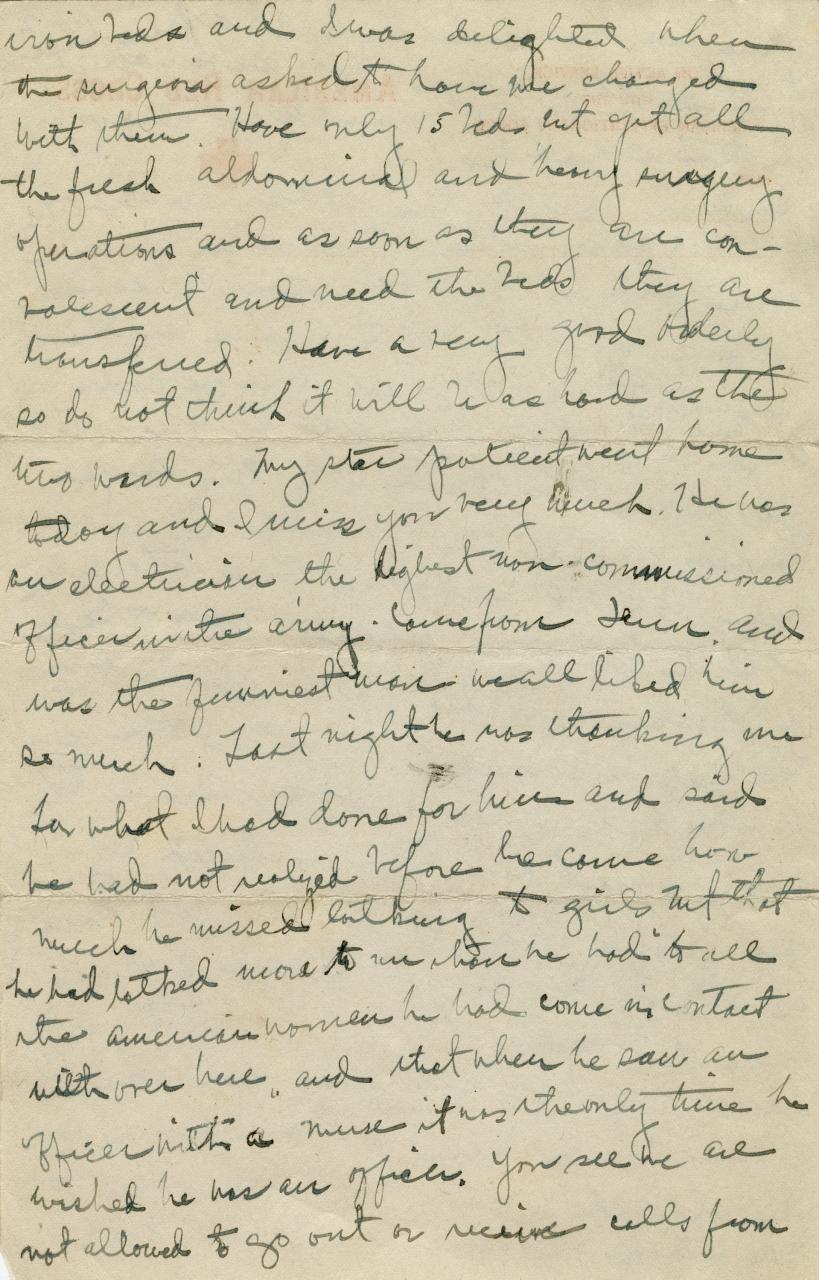 iron beds and I was delighted when
the surgeon asked to have me changed
with them. Have only 15 beds but get all
the fresh abdominal and heavy surgery
operations and as soon as they are con-
valescent and need the beds they are
transferred. Have a very good orderly
so do not think it will be as hard as the
two wards. My star patient went home
today and I miss you very much. He was
an electrician the highest non-commissioned
officer in the army. Came from Tenn. and
was the funniest man we all liked him
so much. Last night he was thanking me
for what I had done for him and said
he had not realized before he came how
much he missed talking to girls but that
he had talked more to me than he had to all
the american women he had come in contact
with over here, and that when he saw an
officer with a nurse it was the only time he
wished he was an officer. You see we are
not allowed to go out or receive calls from